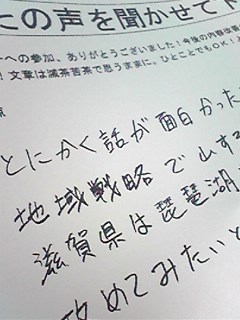 たの声を聞かせて下
ーへの参加、ありがとうございました!今後の内容改善
!文章は滅茶苦茶で思うままに。ひとことでもOK!
とにかく話が面白かった
地域戦略で山する
滋賀県は琵琶湖
改めてみたいと